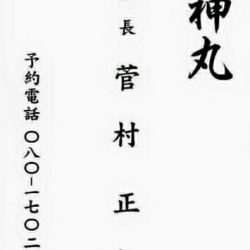 神丸
長 菅村正
予約電話 〇八〇－一七〇二